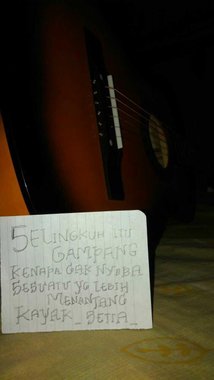 SELINGKUH ITU
GAMPANG
KENAPA GAK NYOBA
SESUATU YG LEBIH
MENANTANG
KAYAK _SETIA_